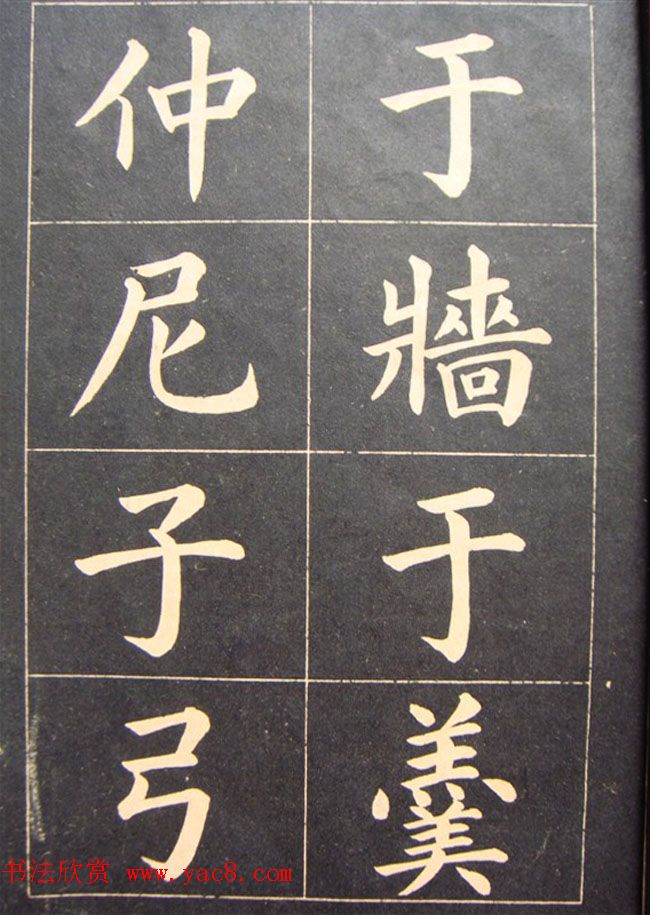 于牆于羹
仲尼子弓
书法欣赏 www.yac8.com